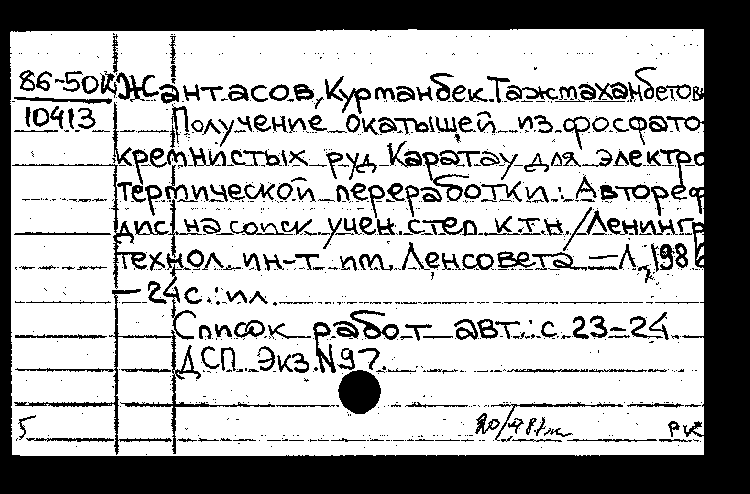 86-50к Жантасов, Курманбек Тажмаханбетов
10413 Получение окатышей из фосфато-
кремнистых руд Каратау для электро
термической переработки: Автореф
дис. на соиск учен. степ к.т.н. /Ленингр
технол. ин-т им. Ленсовета — Л., 1986
— 24с.: ил.
Список работ авт.: с. 23-24
ДСП Экз. N97.
5